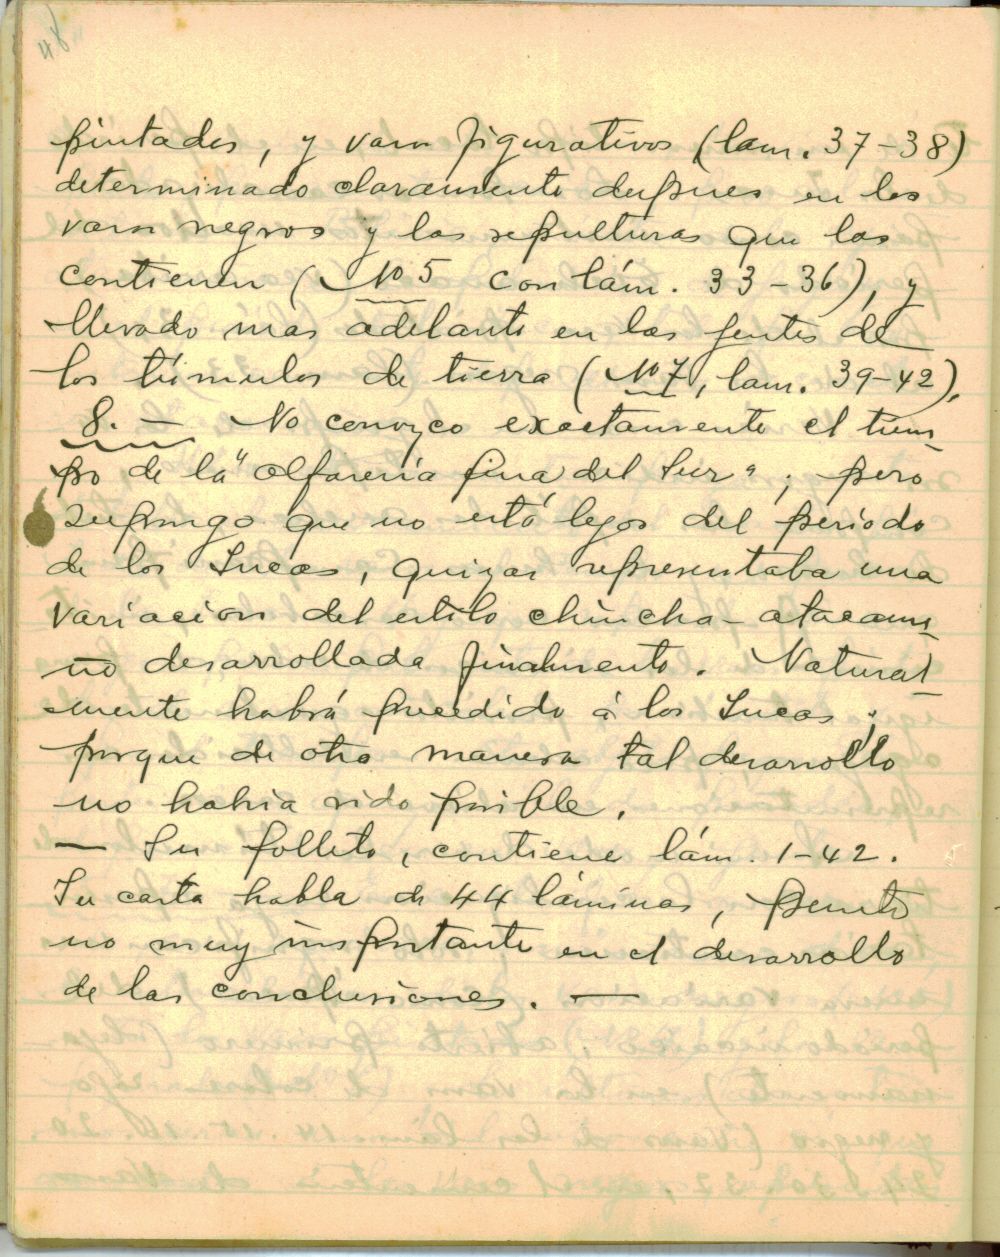 48
pintados, y vasos figurativos (lam. 37-38)
determinado claramente despues en los
vasos negros y las sepulturas que los
contienen (No 5 con lám. 33-36), y
llevado mas adelante en las gentes de
los túmulos de tierra (No 7, lam. 39-42).
8. — No conozco exactamente el tiem-
po de la "alfareria fina del Sur"; pero
supongo que no está lejos del periodo
de los Incas, quizas representaba una
variacion del estilo chincha-atacame-
ño desarrollada finalmente. Natural-
mente habrá precedido á los Incas;
porque de otra manera tal desarrollo
no habria sido posible.
— Su folleto, contiene lám. 1-42.
Su carta habla de 44 láminas, punto
no muy importante en el desarrollo
de las conclusiones. —